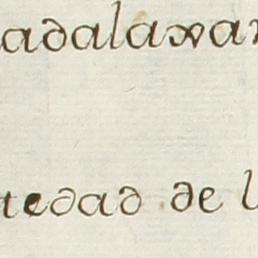 adalaxar
edad de l